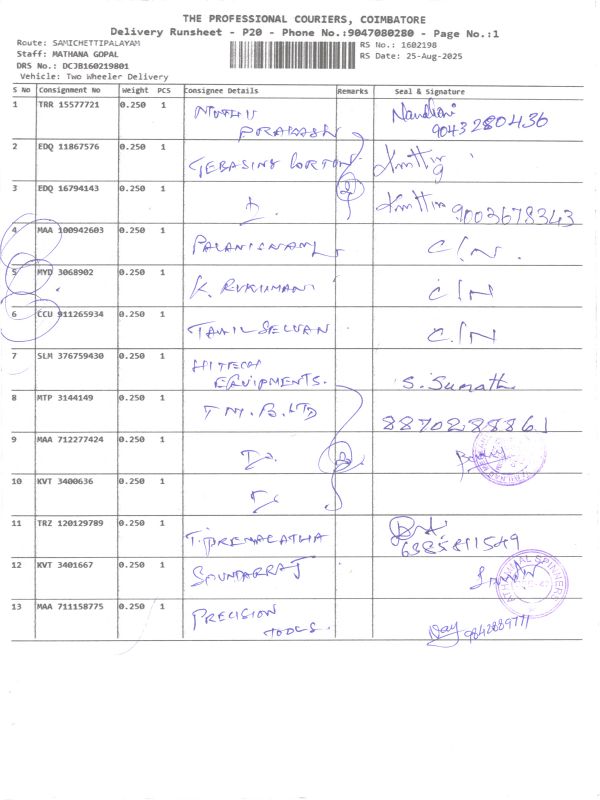 THE PROFESSIONAL COURIERS, COIMBATORE
Delivery Runsheet - P20 - Phone No.:9047080280 - Page No.:1
Route: SAMICHETTIPALAYAM RS No.: 1602198
Staff: MATHANA GOPAL RS Date: 25-Aug-2025
DRS No.: DCJB160219801
Vehicle: Two Wheeler Delivery
S No Consignment No Weight PCS Consignee Details Remarks Seal & Signature
1 TRR 15577721 0.250 1 MUTHU Nandhini
PRAKASH 9043280436
2 EDQ 11867576 0.250 1
3 EDQ 16794143 0.250 1 2 9003678343
4 MAA 100942603 0.250 1 PALANISWAMY C/N.
5 MYD 3068902 0.250 1 K. RUKUMANI C/N
6 CCU 911265934 0.250 1 TAMIL SELVAN C/N
7 SLM 376759430 0.250 1 HITECH
EQUIPMENTS. S. Sumathi
8 MTP 3144149 0.250 1 T.M.B.LTD 8870288861
9 MAA 712277424 0.250 1 Do.
10 KVT 3400636 0.250 1 Do
11 TRZ 120129789 0.250 1 T.PREMALATHA 6385811549
12 KVT 3401667 0.250 1 SOUNDARRAJ
13 MAA 711158775 0.250 1 PRECISION
TOOLS. 9842889771